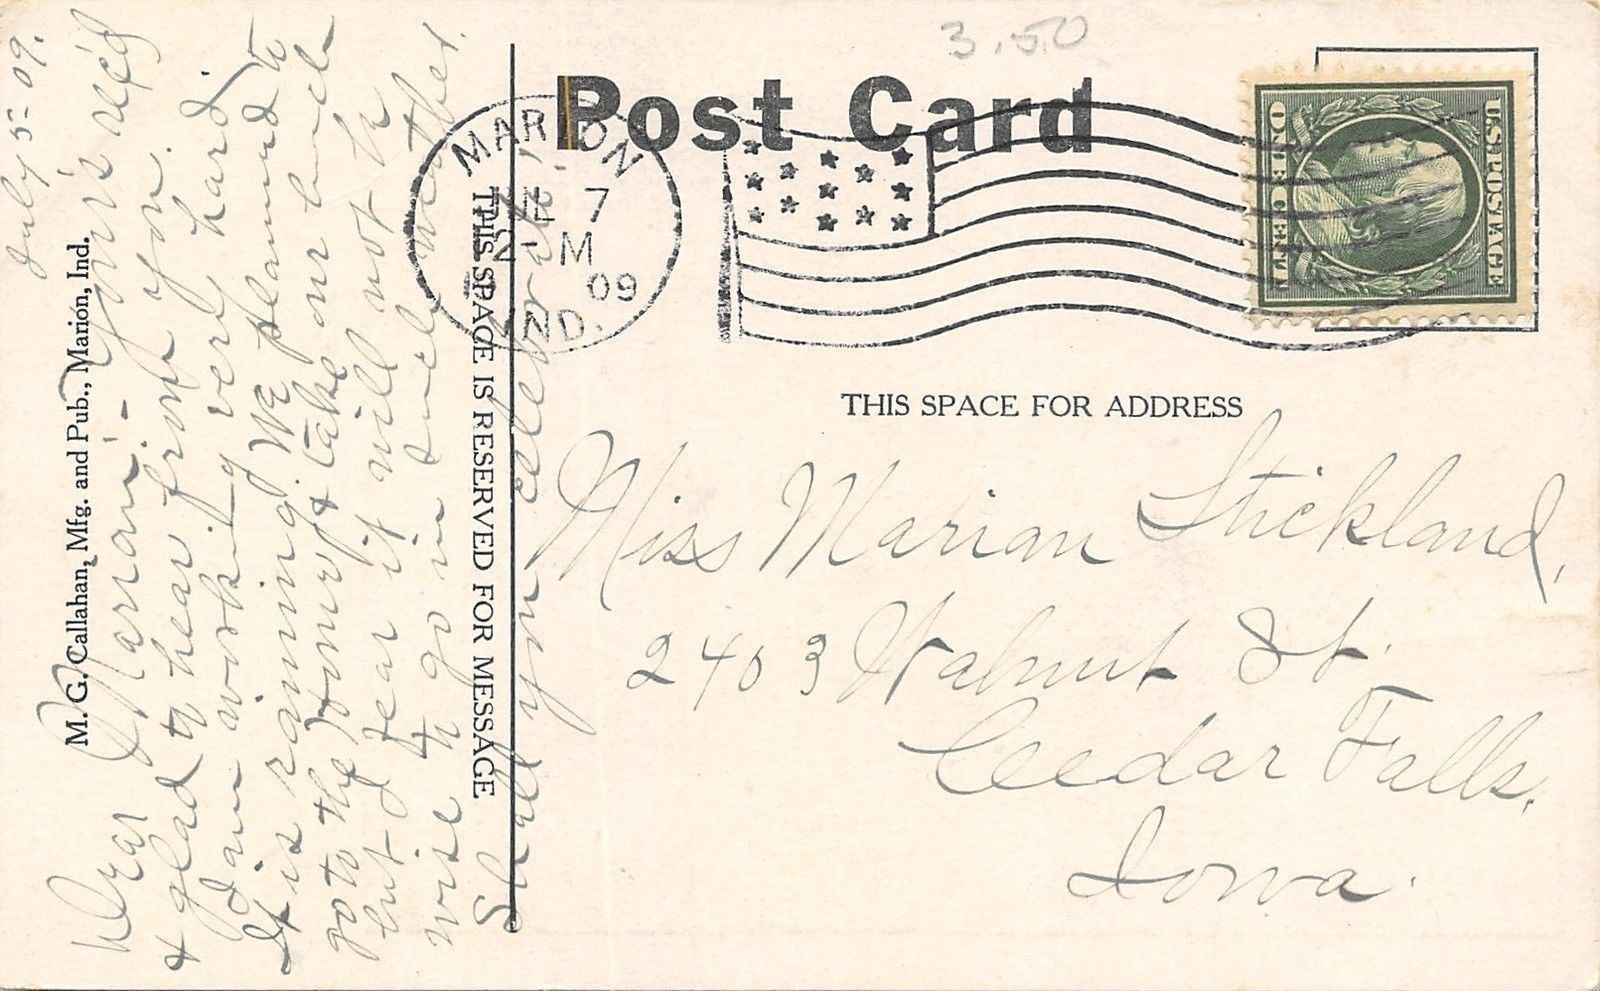 3.50
Post Card
MARION
7
M
09
IND.
U.S. POSTAGE
ONE CENT
THIS SPACE FOR ADDRESS
Miss Marian Stickland,
2403 Walnut St.
Ceedar Falls,
Iowa.
M. G. Callahan, Mfg. and Pub., Marion, Ind.
THIS SPACE IS RESERVED FOR MESSAGE
July 5-09.
Dear Marian:- Your's rec'd
& glad to hear from you.
I am working very hard.
It is raining. We planned to
go to the & take our lunch
but I fear it will not be
wise to go in such weather.
Shall you celebrate